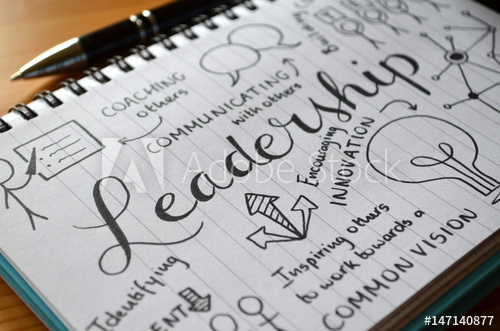 COACHING
others
COMMUNICATING
with others
Leadership
Encouraging
INNOVATION
Inspiring others
to work towards a
COMMON VISION
Identifying
147140877